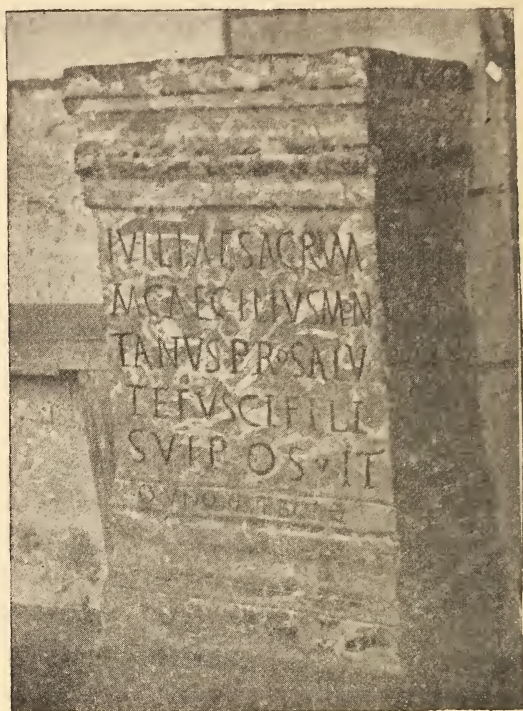 SACRVM
M CAECILIVS MON
TANVS PRO SALV
TE FVSCI FILI
SVI POSVIT